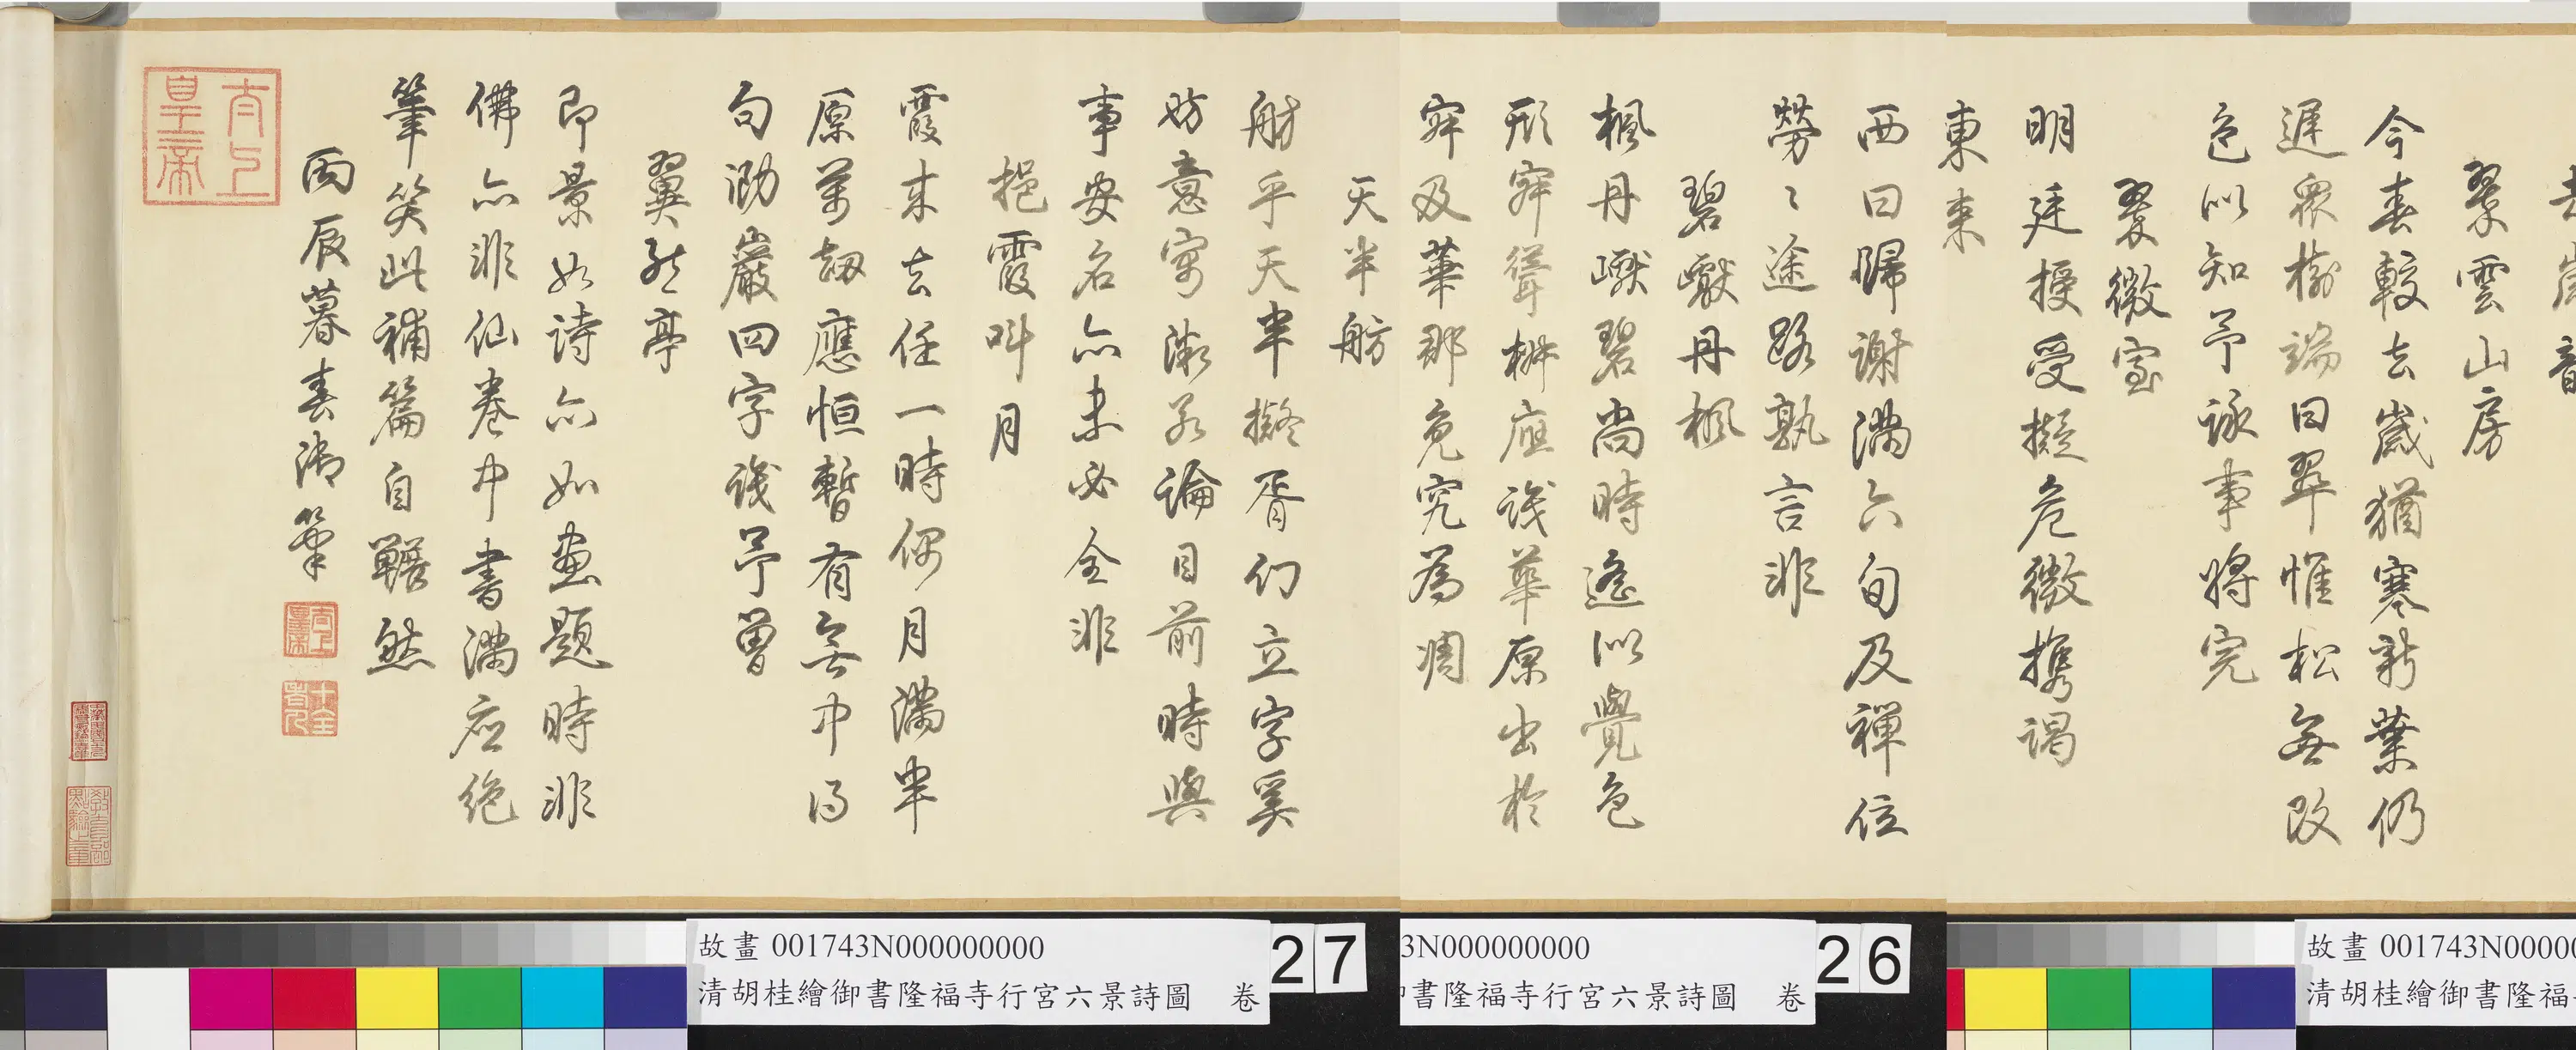 翠雲山房
今春較去歲猶寒新葉仍
遲衆樹端曰翠惟松無改
色以知予詠事將完
翠微室
明廷授受擬危微携謁
東來
西曰歸謝滿六旬及禪位
勞〻途路孰言非
碧巘丹楓
楓丹巘碧尚時遙似覺色
形寀聳樹應識華原出於
寀及華那免究為凋
天半舫
舫乎天半擬胥們立字奚
妨意寓漵若論目前時與
事安名亦未必全非
挹霞叫月
霞來去任一時偶月滿半
原萬劫應恒暫有無中得
句泐巖四字識予曾
翼然亭
即景如詩亦如畫題時非
佛亦非仙卷中書滿應絶
筆笑此補篇自囅然
丙辰暮春御筆
太上皇帝
太上皇帝
十全老人
故畫 001743N000000000
清胡桂繪御書隆福寺行宮六景詩圖 卷
27
3N000000000
書隆福寺行宮六景詩圖 卷
26
故畫 001743N00000
清胡桂繪御書隆福